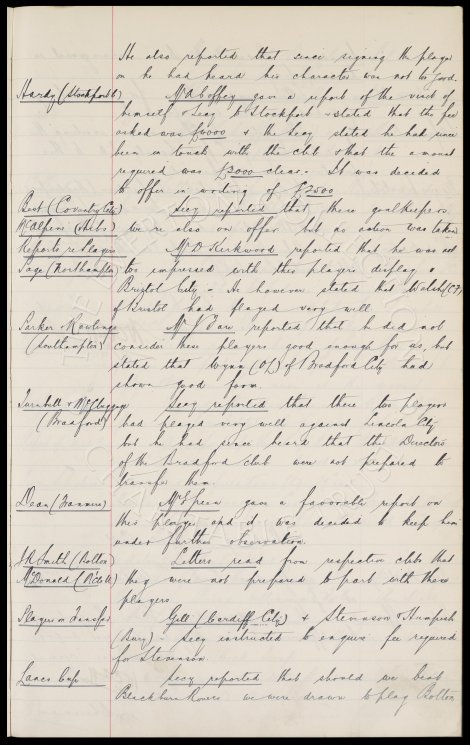 He also reported that since signing the player
on he had heard his character was not too good.
Hardy (Stockport C) Mr A Coffey gave a report of the visit of
himself & Secy to Stockport & stated that the fee
asked was £4000 & the Secy stated he had since
been in touch with the club & that the amount
required was £3000 clear. It was decided
to offer in writing of £2500
Best (Coventry City) Secy reported that these goalkeepers
McAlpine (Hibs) were also on offer but no action was taken
Reports re Players Mr D Kirkwood reported that he was not
Sage (Northampton) too impressed with this players display v
Bristol City - He however stated that Walsh (CF)
of Bristol had played very well
Parker Rowlings Mr reported that he did not
(Southampton) consider these players good enough for us, but
stated that Wynn (OL) of Bradford City had
shown good form.
Turnbull & McCluggage Secy reported that these two players
(Bradford) had played very well against Lincoln City
but he had since heard that the Directors
of the Bradford club were not prepared to
transfer them.
Dean (Tranmere) Mr Green gave a favorable report on
this player, and it was decided to keep him
under further observation.
J R Smith (Bolton) Letters read from respective clubs that
McDonald they were not prepared to part with these
players
Players on Transfer Gill (Cardiff City) & Stevenson & Humpish
(Bury) - Secy instructed to enquire fee required
for Stevenson
Lancs Cup Secy reported that should we beat
Blackburn Rovers we were drawn to play Bolton